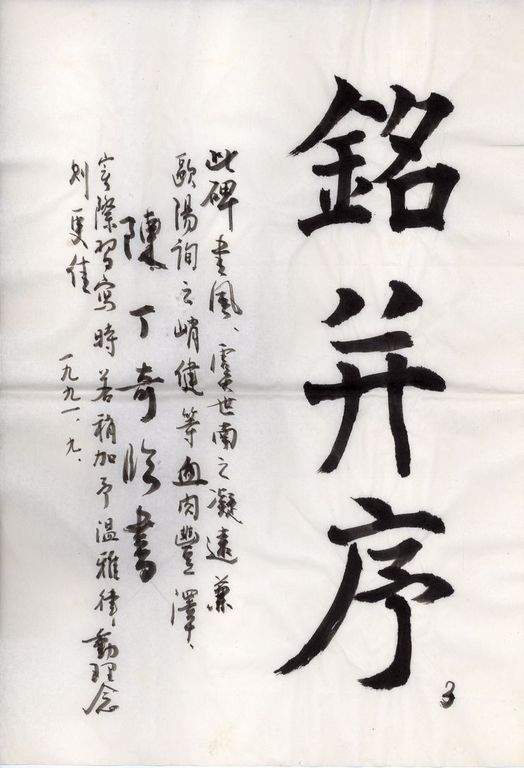 銘并序
3
此碑書風、虞世南之凝遠兼
歐陽詢之峭健等血肉豐澤、
陳丁奇臨書
實際習寫時若稍加予溫雅律動理念
則更佳
一九九一、九、